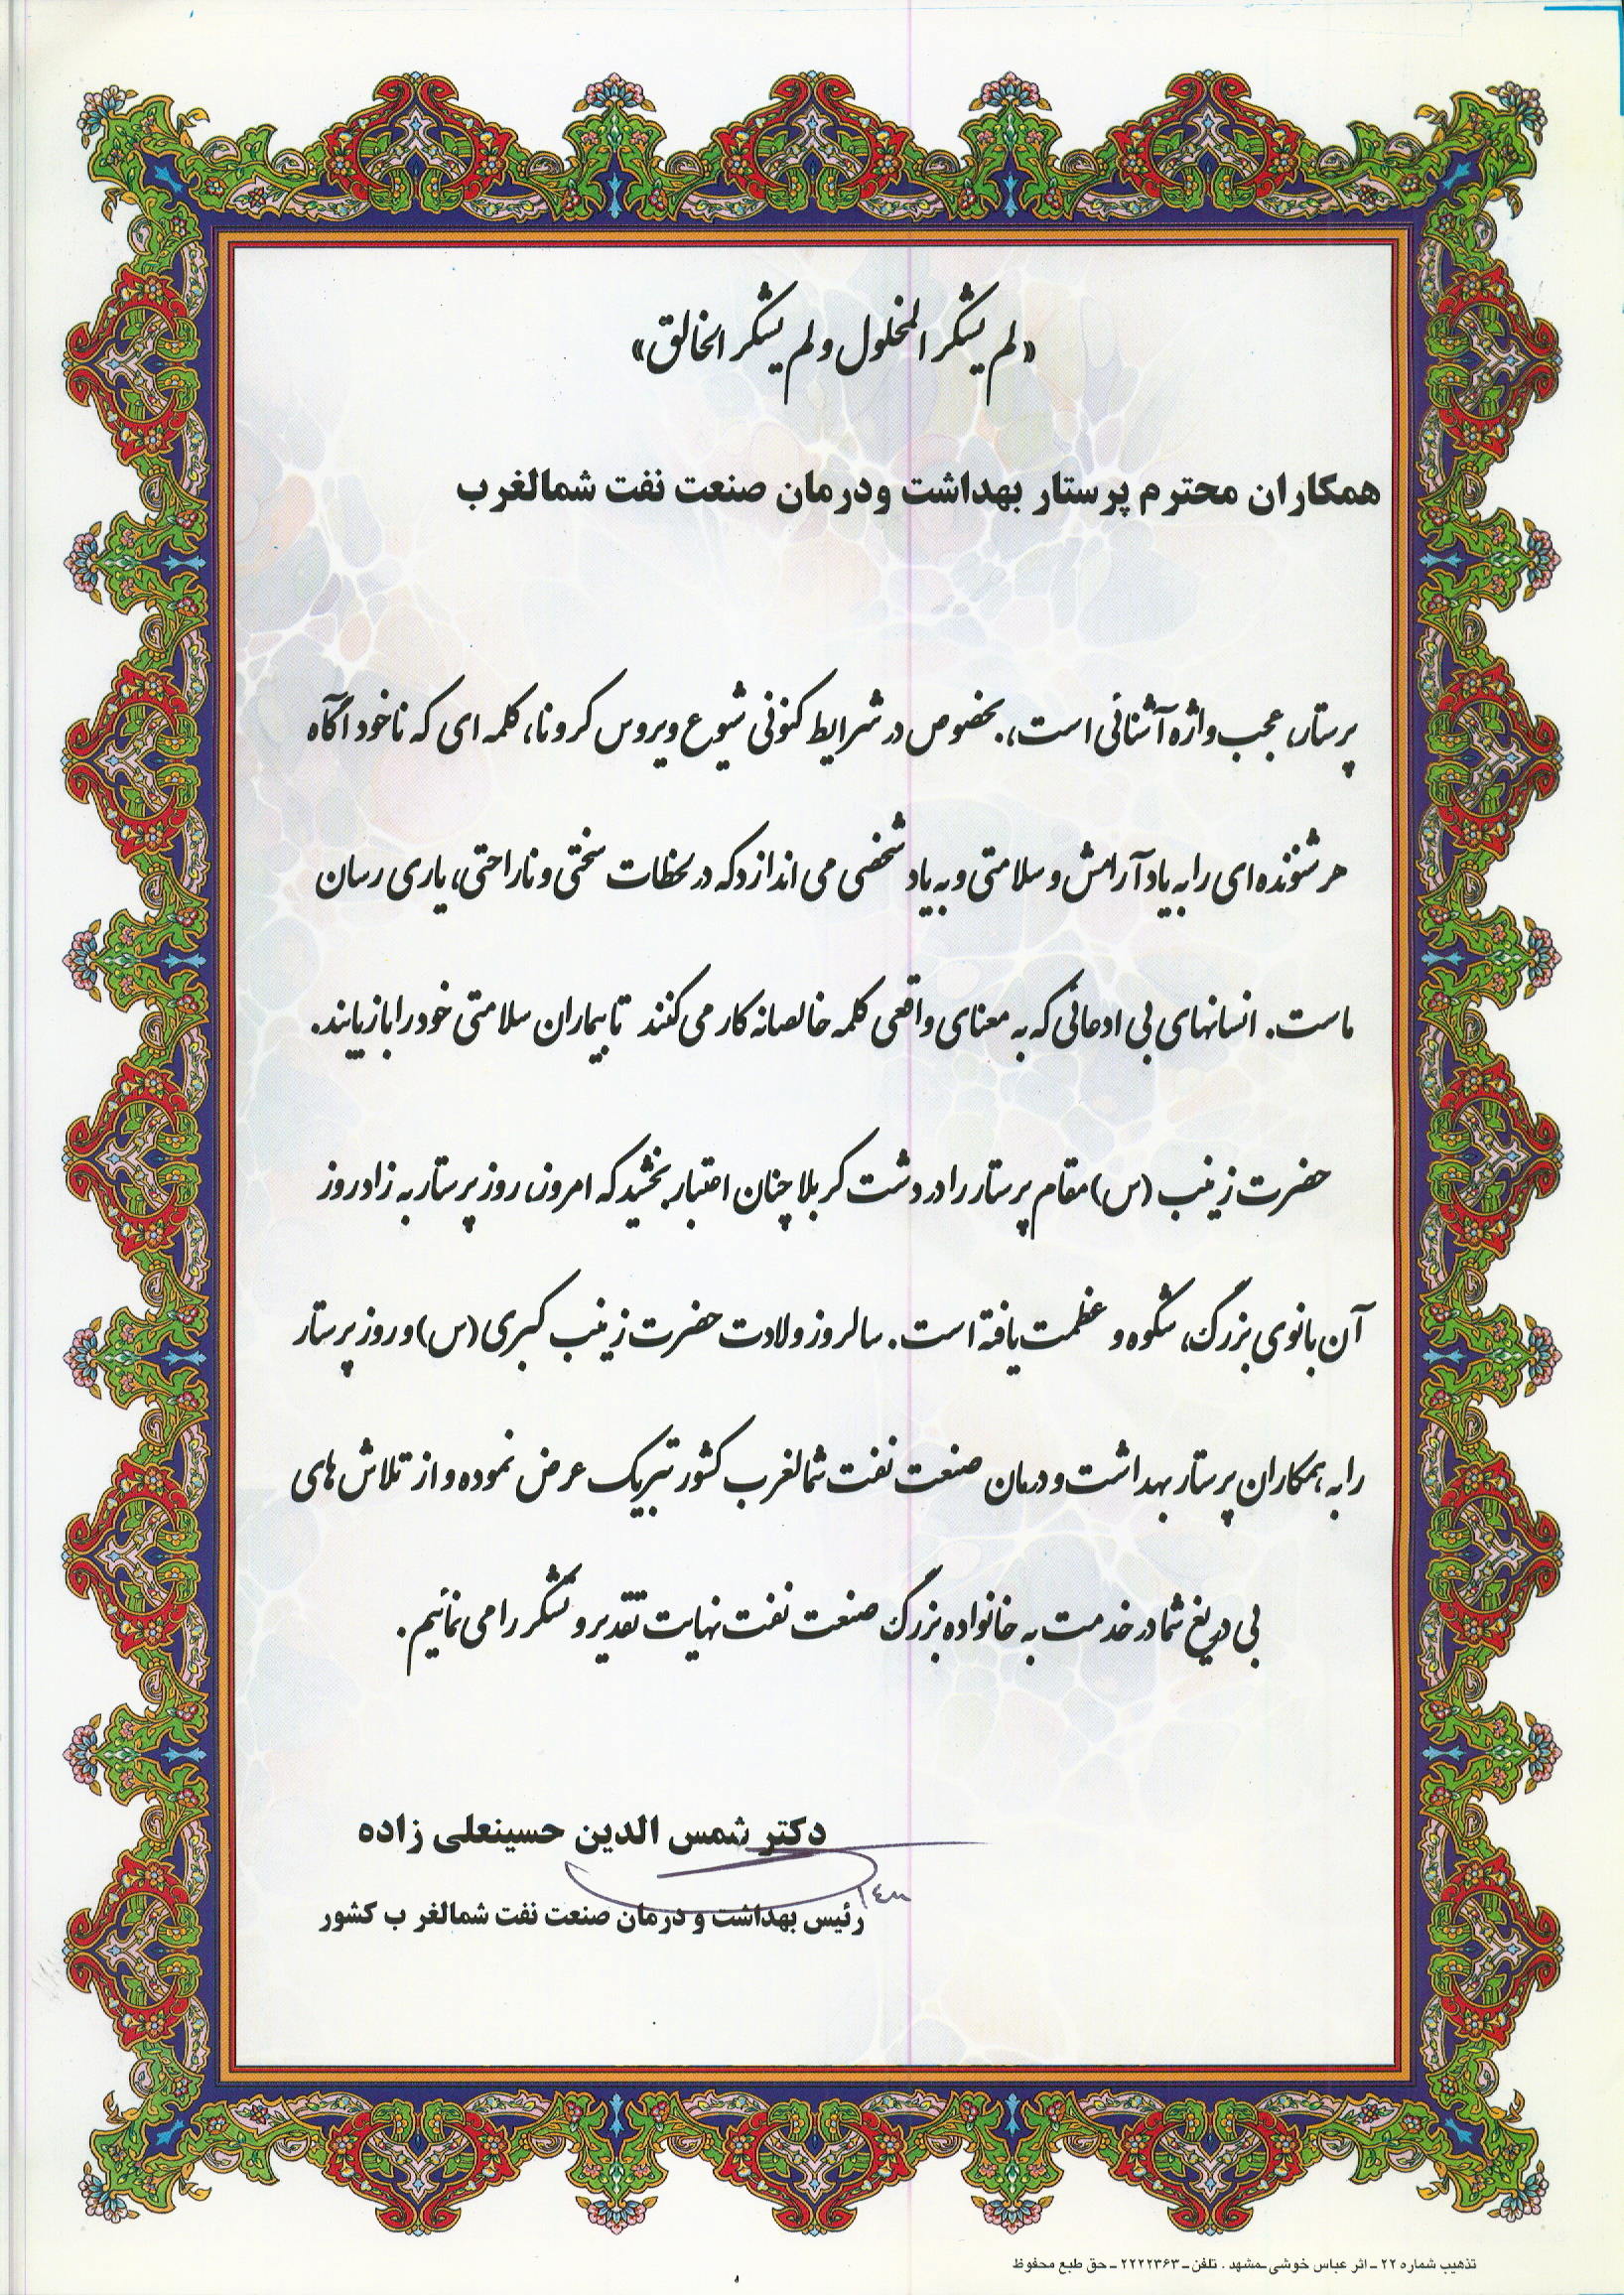 «لم یشکر المخلول و لم یشکر الخالق»
همکاران محترم پرستار بهداشت ودرمان صنعت نفت شمالغرب
پرستار، عجب واژه آشنائی است، بخصوص در شرایط کنونی شیوع ویروس کرونا، کلمه ای که ناخود آگاه
هر شنونده ای را به یاد آرامش و سلامتی و به یاد شخصی می اندازد که در لحظات سختی و ناراحتی، یاری رسان
ماست. انسانهای بی ادعائی که به معنای واقعی کلمه خالصانه کار می کنند تا بیماران سلامتی خود را بازیابند.
حضرت زینب (س) مقام پرستار را در دشت کربلا چنان اعتبار بخشید که امروز، روز پرستار به زاد روز
آن بانوی بزرگ، شکوه و عظمت یافته است. سالروز ولادت حضرت زینب کبری (س) و روز پرستار
را به همکاران پرستار بهداشت و درمان صنعت نفت شمالغرب کشور تبریک عرض نموده و از تلاش های
بی دریغ شما در خدمت به خانواده بزرگ صنعت نفت نهایت تقدیر و تشکر را می نمائیم.
دکتر شمس الدین حسینعلی زاده
رئیس بهداشت و درمان صنعت نفت شمالغر ب کشور
تذهیب شماره ۲۲ ـ اثر عباس خوشی ـ مشهد . تلفن ـ ۲۲۲۲۳۶۳ ـ حق طبع محفوظ